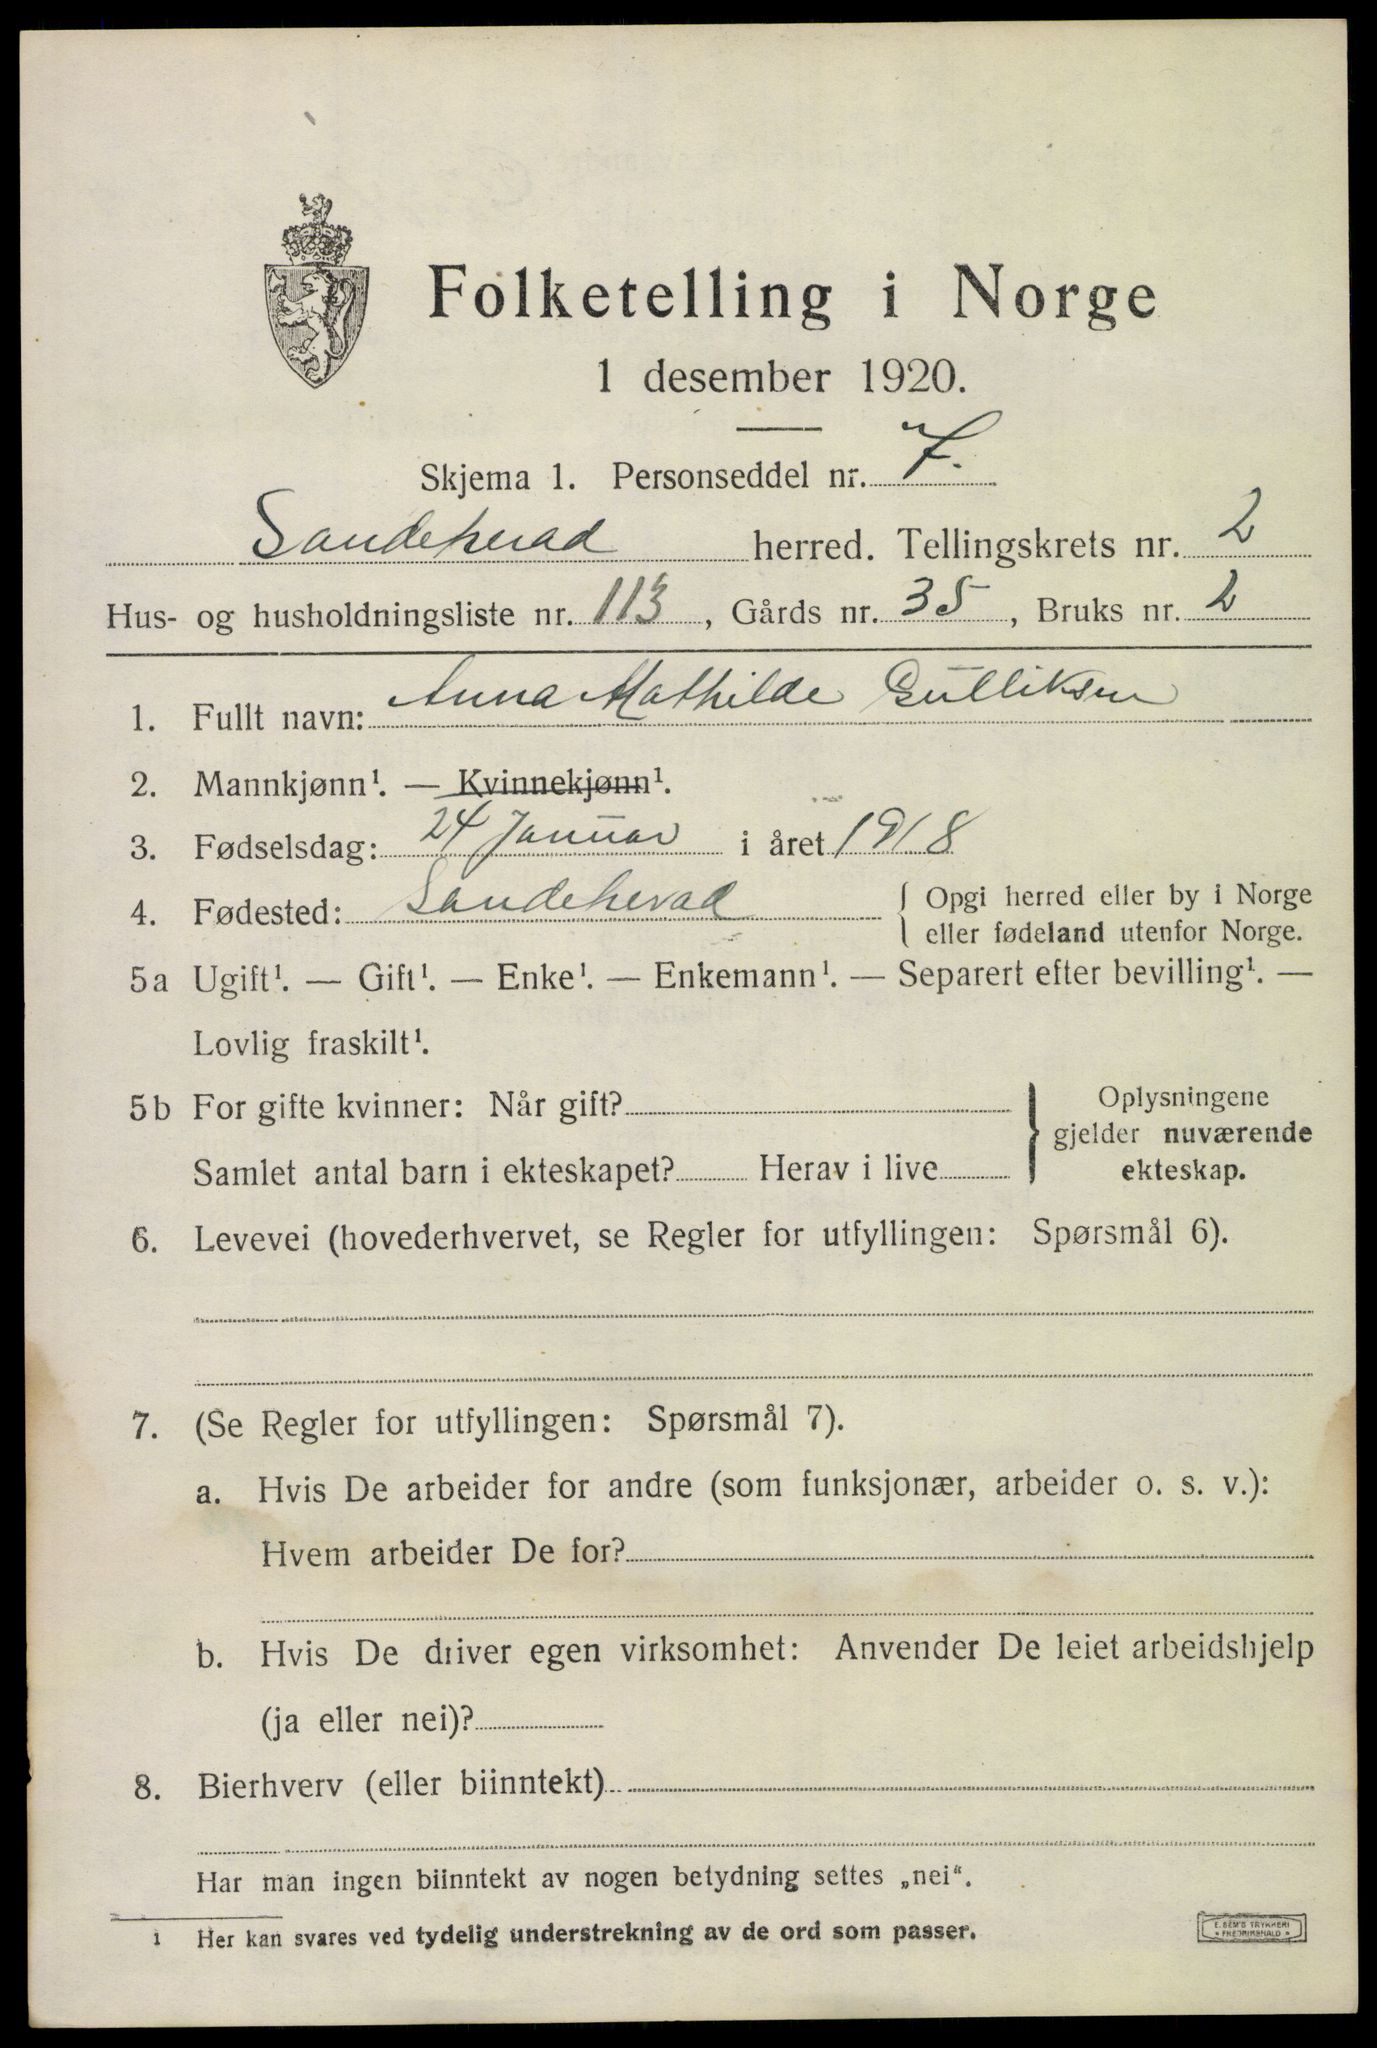 Folketelling i Norge
1 desember 1920.
Skjema 1. Personseddel nr. 7.
Sandeherad herred. Tellingskrets nr. 2
Hus- og husholdningsliste nr. 113, Gårds nr. 35, Bruks nr. 2
1. Fullt navn: Anna Mathilde Gulliksen
2. Mannkjønn¹. — Kvinnekjønn¹.
3. Fødselsdag: 24 Januar i året 1918
4. Fødested: Sandeherad { Opgi herred eller by i Norge
eller fødeland utenfor Norge.
5a Ugift¹. — Gift¹. — Enke¹. — Enkemann¹. — Separert efter bevilling¹. —
Lovlig fraskilt¹.
5b For gifte kvinner: Når gift? Oplysningene
gjelder nuværende
Samlet antal barn i ekteskapet? Herav i live ekteskap.
6. Levevei (hovederhvervet, se Regler for utfyllingen: Spørsmål 6).
7. (Se Regler for utfyllingen: Spørsmål 7).
a. Hvis De arbeider for andre (som funksjonær, arbeider o. s. v.):
Hvem arbeider De for?
b. Hvis De driver egen virksomhet: Anvender De leiet arbeidshjelp
(ja eller nei)?
8. Bierhverv (eller biinntekt)
Har man ingen biinntekt av nogen betydning settes „nei“.
1 Her kan svares ved tydelig understrekning av de ord som passer.
E. SEM'S TRYKKERI
* FREDRIKSHALD *